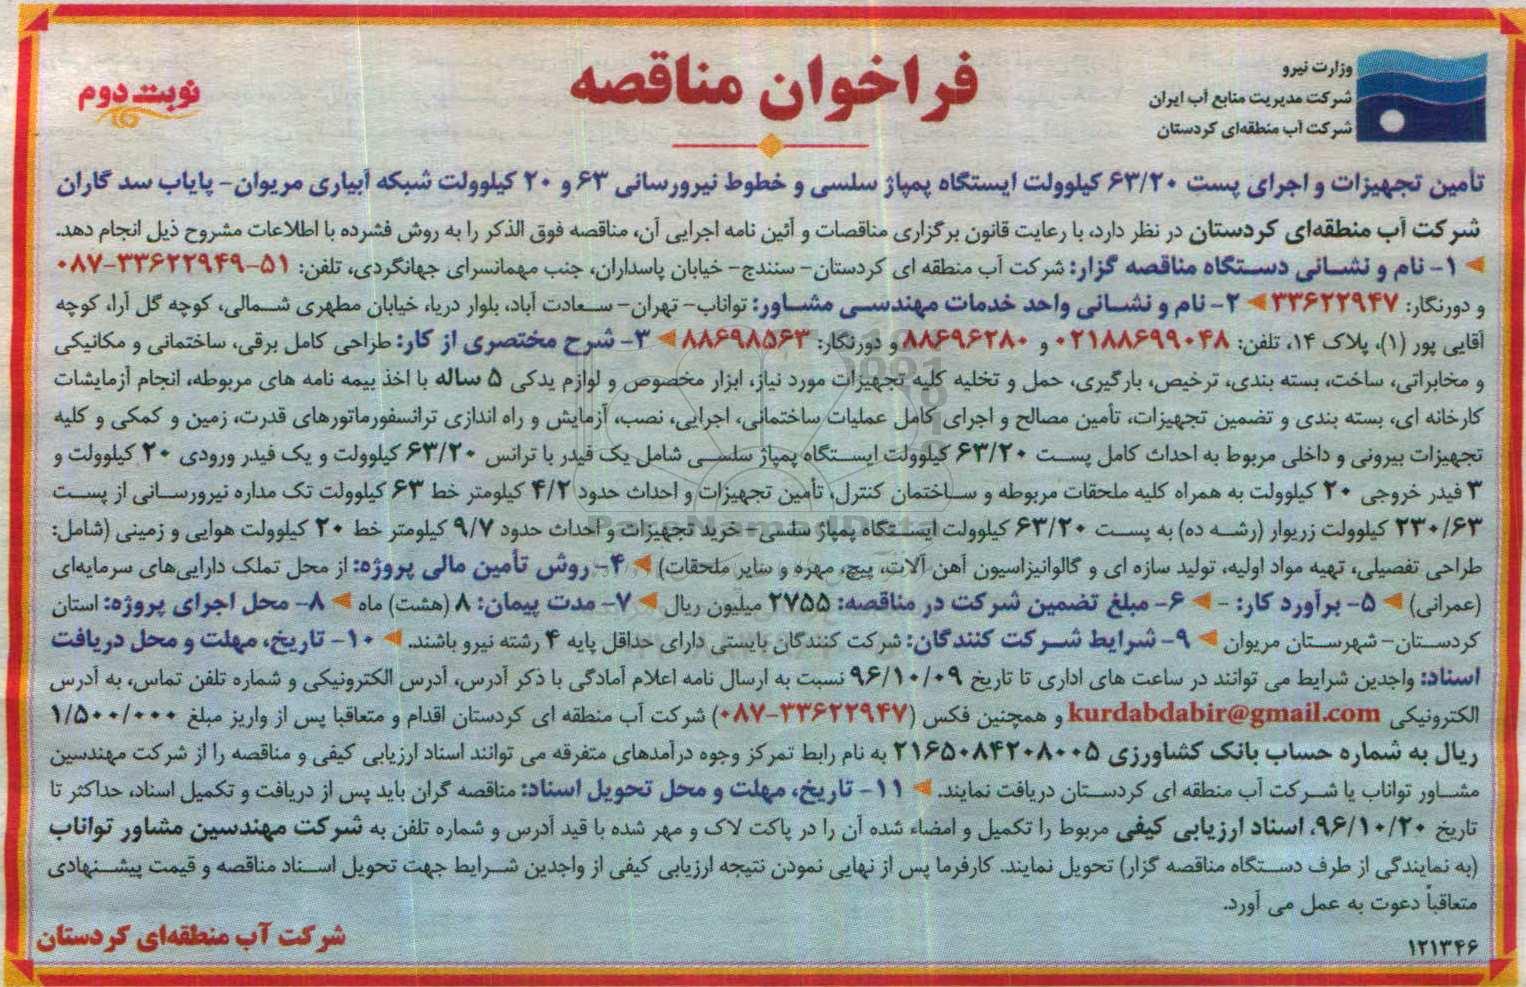 وزارت نیرو
شرکت مدیریت منابع آب ایران
شرکت آب منطقه‌ای کردستان
فراخوان مناقصه
نوبت دوم
تأمین تجهیزات و اجرای پست ۶۳/۲۰ کیلوولت ایستگاه پمپاژ سلسی و خطوط نیرورسانی ۶۳ و ۲۰ کیلوولت شبکه آبیاری مریوان- پایاب سد گاران
شرکت آب منطقه‌ای کردستان در نظر دارد، با رعایت قانون برگزاری مناقصات و آئین نامه اجرایی آن، مناقصه فوق الذکر را به روش فشرده با اطلاعات مشروح ذیل انجام دهد.
۱- نام و نشانی دستگاه مناقصه گزار: شرکت آب منطقه ای کردستان- سنندج- خیابان پاسداران، جنب مهمانسرای جهانگردی، تلفن: ۵۱-۳۳۶۲۲۹۴۹-۰۸۷
و دورنگار: ۳۳۶۲۲۹۴۷ ۲- نام و نشانی واحد خدمات مهندسی مشاور: تواناب- تهران- سعادت آباد، بلوار دریا، خیابان مطهری شمالی، کوچه گل آرا، کوچه
آقایی پور (۱)، پلاک ۱۴، تلفن: ۰۲۱۸۸۶۹۹۰۴۸ و ۸۸۶۹۶۲۸۰ و دورنگار: ۸۸۶۹۸۵۶۳ ۳- شرح مختصری از کار: طراحی کامل برقی، ساختمانی و مکانیکی
و مخابراتی، ساخت، بسته بندی، ترخیص، بارگیری، حمل و تخلیه کلیه تجهیزات مورد نیاز، ابزار مخصوص و لوازم یدکی ۵ ساله با اخذ بیمه نامه های مربوطه، انجام آزمایشات
کارخانه ای، بسته بندی و تضمین تجهیزات، تأمین مصالح و اجرای کامل عملیات ساختمانی، اجرایی، نصب، آزمایش و راه اندازی ترانسفورماتورهای قدرت، زمین و کمکی و کلیه
تجهیزات بیرونی و داخلی مربوط به احداث کامل پست ۶۳/۲۰ کیلوولت ایستگاه پمپاژ سلسی شامل یک فیدر با ترانس ۶۳/۲۰ کیلوولت و یک فیدر ورودی ۲۰ کیلوولت و
۳ فیدر خروجی ۲۰ کیلوولت به همراه کلیه ملحقات مربوطه و ساختمان کنترل، تأمین تجهیزات و احداث حدود ۴/۲ کیلومتر خط ۶۳ کیلوولت تک مداره نیرورسانی از پست
۲۳۰/۶۳ کیلوولت زریوار (رشه ده) به پست ۶۳/۲۰ کیلوولت ایستگاه پمپاژ سلسی- خرید تجهیزات و احداث حدود ۹/۷ کیلومتر خط ۲۰ کیلوولت هوایی و زمینی (شامل:
طراحی تفصیلی، تهیه مواد اولیه، تولید سازه ای و گالوانیزاسیون آهن آلات، پیچ، مهره و سایر ملحقات) ۴- روش تأمین مالی پروژه: از محل تملک دارایی‌های سرمایه‌ای
(عمرانی) ۵- برآورد کار: - ۶- مبلغ تضمین شرکت در مناقصه: ۲۷۵۵ میلیون ریال ۷- مدت پیمان: ۸ (هشت) ماه ۸- محل اجرای پروژه: استان
کردستان- شهرستان مریوان ۹- شرایط شرکت کنندگان: شرکت کنندگان بایستی دارای حداقل پایه ۴ رشته نیرو باشند. ۱۰- تاریخ، مهلت و محل دریافت
اسناد: واجدین شرایط می توانند در ساعت های اداری تا تاریخ ۹۶/۱۰/۰۹ نسبت به ارسال نامه اعلام آمادگی با ذکر آدرس، آدرس الکترونیکی و شماره تلفن تماس، به آدرس
الکترونیکی kurdabdabir@gmail.com و همچنین فکس (۳۳۶۲۲۹۴۷-۰۸۷) شرکت آب منطقه ای کردستان اقدام و متعاقبا پس از واریز مبلغ ۱/۵۰۰/۰۰۰
ریال به شماره حساب بانک کشاورزی ۲۱۶۵۰۸۴۲۰۸۰۰۵ به نام رابط تمرکز وجوه درآمدهای متفرقه می توانند اسناد ارزیابی کیفی و مناقصه را از شرکت مهندسین
مشاور تواناب یا شرکت آب منطقه ای کردستان دریافت نمایند. ۱۱- تاریخ، مهلت و محل تحویل اسناد: مناقصه گران باید پس از دریافت و تکمیل اسناد، حداکثر تا
تاریخ ۹۶/۱۰/۲۰، اسناد ارزیابی کیفی مربوط را تکمیل و امضاء شده آن را در پاکت لاک و مهر شده با قید آدرس و شماره تلفن به شرکت مهندسین مشاور تواناب
(به نمایندگی از طرف دستگاه مناقصه گزار) تحویل نمایند. کارفرما پس از نهایی نمودن نتیجه ارزیابی کیفی از واجدین شرایط جهت تحویل اسناد مناقصه و قیمت پیشنهادی
متعاقباً دعوت به عمل می آورد.
۱۲۱۳۴۶
شرکت آب منطقه‌ای کردستان
ParsNamadData